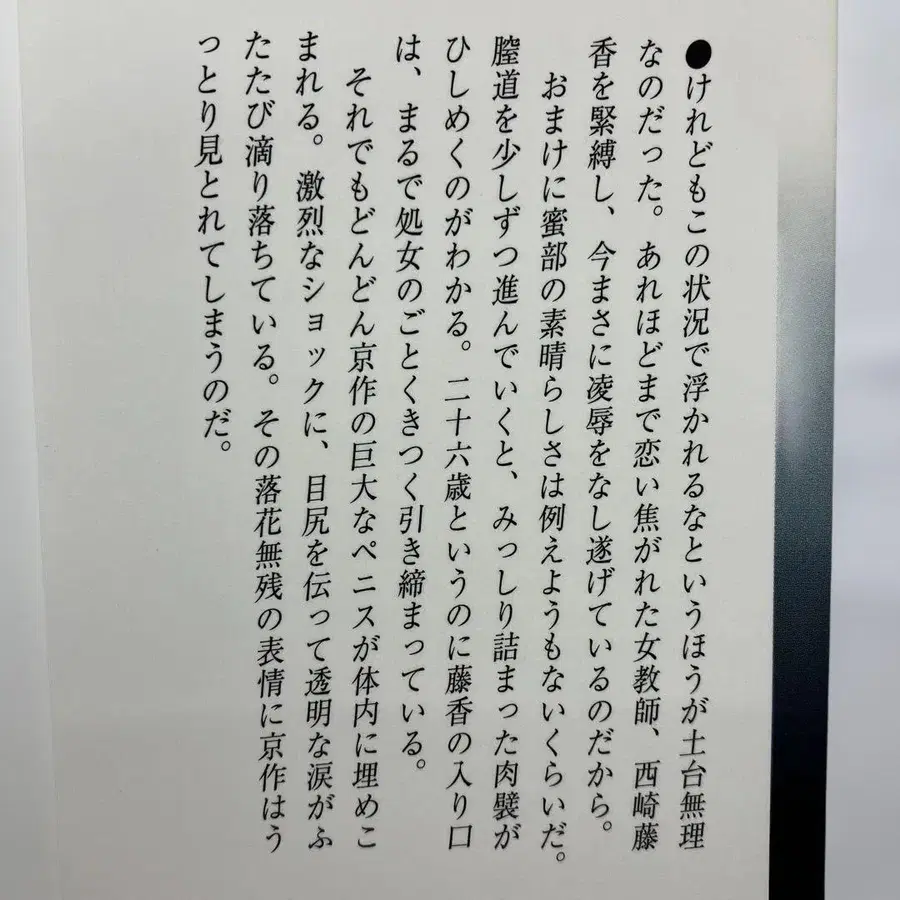 ●けれどもこの状況で浮かれるなというほうが土台無理
なのだった。あれほどまで恋い焦がれた女教師、西崎藤
香を緊縛し、今まさに凌辱をなし遂げているのだから。
おまけに蜜部の素晴らしさは例えようもないくらいだ。
膣道を少しずつ進んでいくと、みっしり詰まった肉襞が
ひしめくのがわかる。二十六歳というのに藤香の入り口
は、まるで処女のごとくきつく引き締まっている。
それでもどんどん京作の巨大なペニスが体内に埋めこ
まれる。激烈なショックに、目尻を伝って透明な涙がふ
たたび滴り落ちている。その落花無残の表情に京作はう
っとり見とれてしまうのだ。